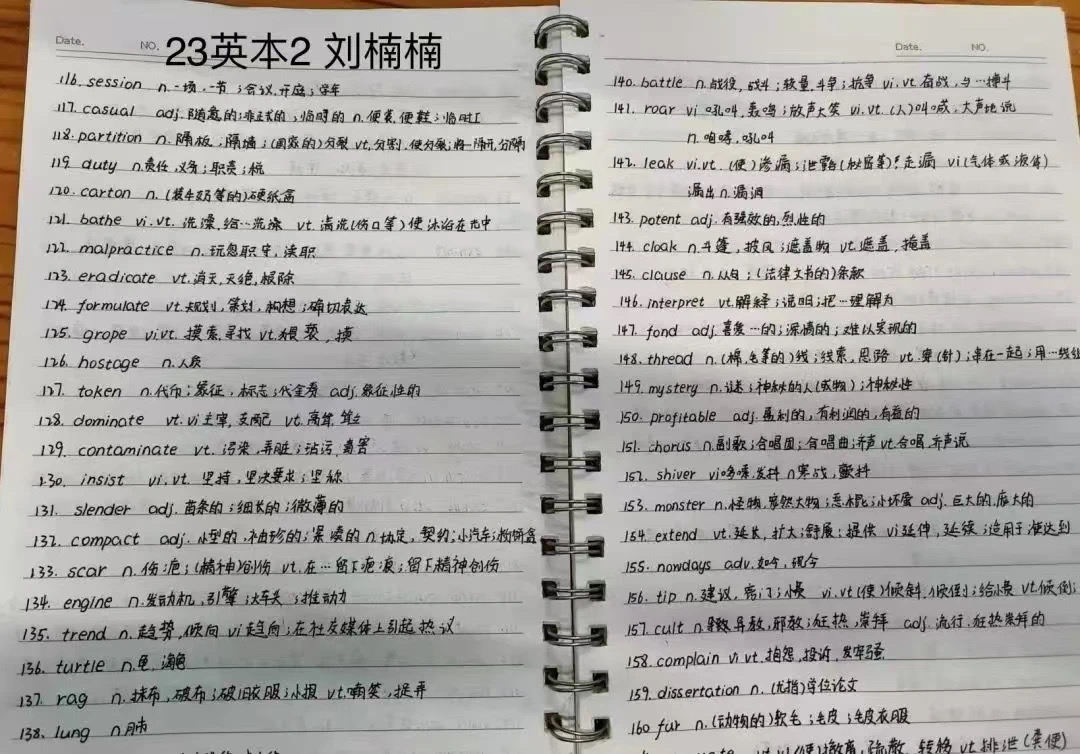 Date.
NO.
23英本2 刘楠楠
116. session n.一场,一节;会议,开庭;学年
117. casual adj.随意的;非正式的;临时的 n.便装,便鞋;临时工
118. partition n.隔板;隔墙;(国家的)分裂 vt.分割,使分裂;将一隔元分隔
119. duty n.责任,义务;职责;税
120. carton n.(装牛奶等的)硬纸盒
121. bathe vi.vt.洗澡,给…洗澡 vt.清洗(伤口等)使沐浴在光中
122. malpractice n.玩忽职守,渎职
123. eradicate vt.消灭,灭绝,根除
124. formulate vt.规划,策划,构想;确切表达
125. grope vi.vt.摸索,寻找 vt.猥亵,摸
126. hostage n.人质
127. token n.代币;象征,标志;代金券 adj.象征性的
128. dominate vt.vi主宰,支配 vt.高耸,耸立
129. contaminate vt.污染,弄脏;玷污,毒害
130. insist vi.vt.坚持,坚决要求;坚称
131. slender adj.苗条的;细长的;微薄的
132. compact adj.小型的,袖珍的;紧凑的 n.协定,契约;小汽车;粉饼盒
133. scar n.伤疤;(精神)创伤 vt.在…留下疤痕;留下精神创伤
134. engine n.发动机,引擎;火车头;推动力
135. trend n.趋势,倾向 vi趋向;在社交媒体上引起热议
136. turtle n.龟,海龟
137. rag n.抹布,破布;破旧衣服;小报 vt.嘲笑,捉弄
138. lung n肺
Date.
NO.
140. battle n.战役,战斗;较量,斗争;抗争 vi.vt.奋战,与…搏斗
141. roar vi吼叫,轰鸣;放声大笑 vi.vt.(人)叫喊,大声地说
n.咆哮,吼叫
142. leak vi.vt.(使)渗漏;泄露(秘密等);走漏 vi(气体或液体)
漏出 n.漏洞
143. potent adj.有强效的,烈性的
144. cloak n.斗篷,披风;遮盖物 vt.遮盖,掩盖
145. clause n.从句;(法律文书的)条款
146. interpret vt.解释;说明;把…理解为
147. fond adj.喜爱…的;深情的;难以实现的
148. thread n.(棉、毛等的)线;线索,思路 vt.穿(针);串在一起;用…线
149. mystery n.谜;神秘的人(或物);神秘性
150. profitable adj.盈利的,有利润的,有益的
151. chorus n.副歌;合唱团;合唱曲;齐声 vt.合唱,齐声说
152. shiver vi哆嗦,发抖 n寒战,颤抖
153. monster n.怪物,庞然大物;恶棍;小坏蛋 adj.巨大的,庞大的
154. extend vt.延长,扩大;舒展;提供 vi延伸,延续;适用于;涨达到
155. nowdays adv.如今,现今
156. tip n.建议,窍门;小费 vi.vt(使)倾斜,倾倒;给小费 vt倾倒;
157. cult n.异教,邪教;狂热,崇拜 adj.流行,狂热崇拜的
158. complain vi vt.抱怨,投诉,发牢骚
159. dissertation n.(尤指)学位论文
160 fur n.(动物的)软毛;毛皮;毛皮衣服